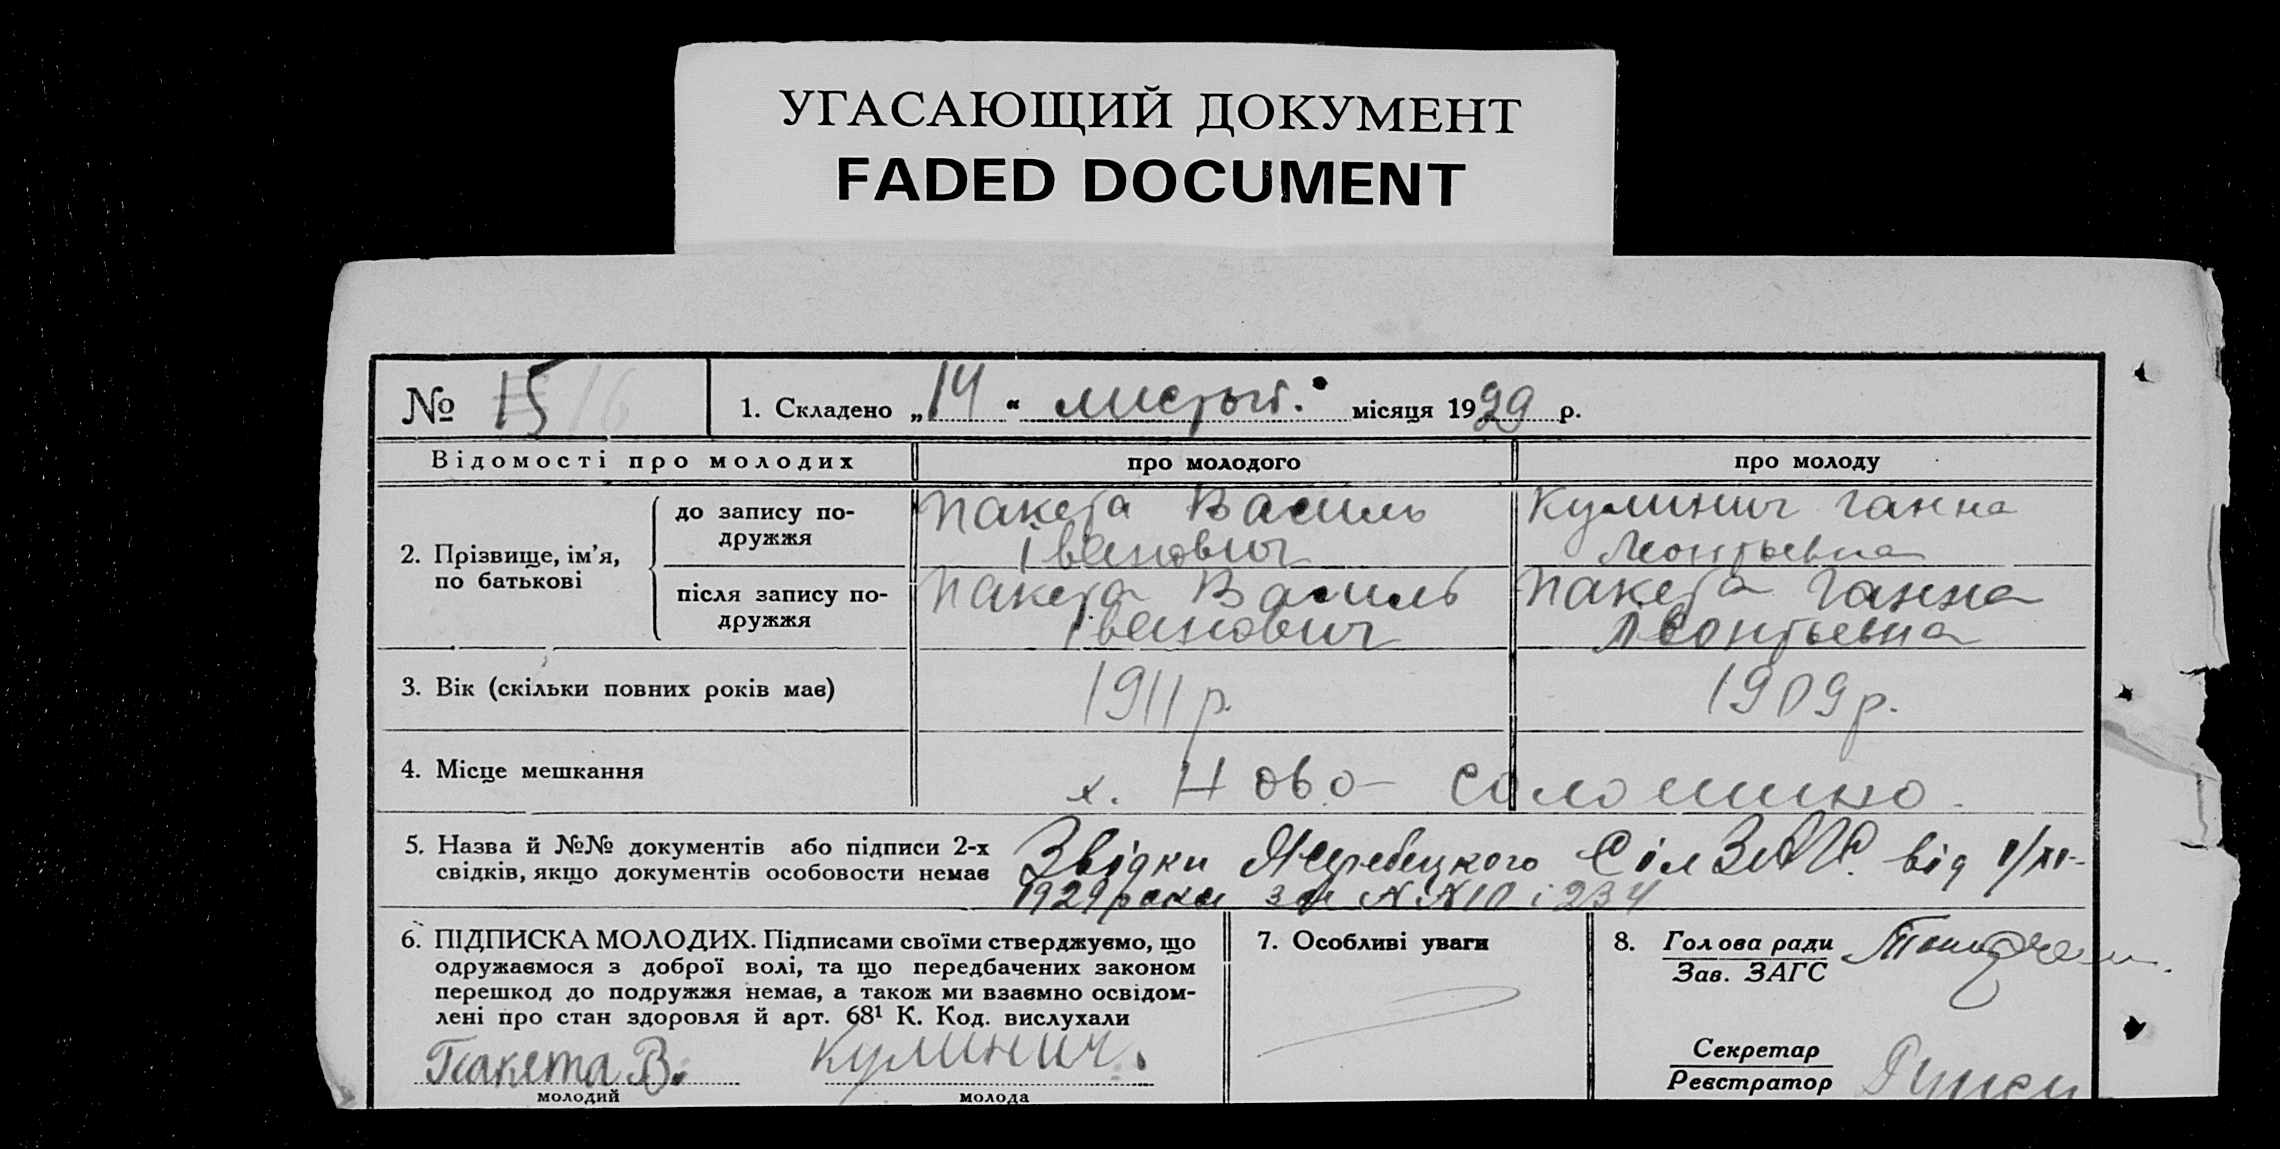 УГАСАЮЩИЙ ДОКУМЕНТ
FADED DOCUMENT
№ 15 16
1. Складено „14“ листоп. місяця 1929 р.
Відомості про молодих
про молодого
про молоду
2. Прізвище, ім'я, по батькові
до запису подружжя
Пакета Василь
Іванович
Кулинич Ганна
Леонтьевна
після запису подружжя
Пакета Василь
Іванович
Пакета Ганна
Леонтьевна
3. Вік (скільки повних років має)
1911 р.
1909 р.
4. Місце мешкання
х. Ново-Соломино.
5. Назва й №№ документів або підписи 2-х
свідків, якщо документів особовости немає
Звідки Жеребецкого СілЗАГС. від /XI-
1929 року за NN 10 і 234
6. ПІДПИСКА МОЛОДИХ. Підписами своїми стверджуємо, що
одружаємося з доброї волі, та що передбачених законом
перешкод до подружжя немає, а також ми взаємно освідом-
лені про стан здоровля й арт. 68¹ К. Код. вислухали
Пакета В.
молодий
Кулинич.
молода
7. Особливі уваги
8. Голова ради
Зав. ЗАГС
Секретар
Реєстратор